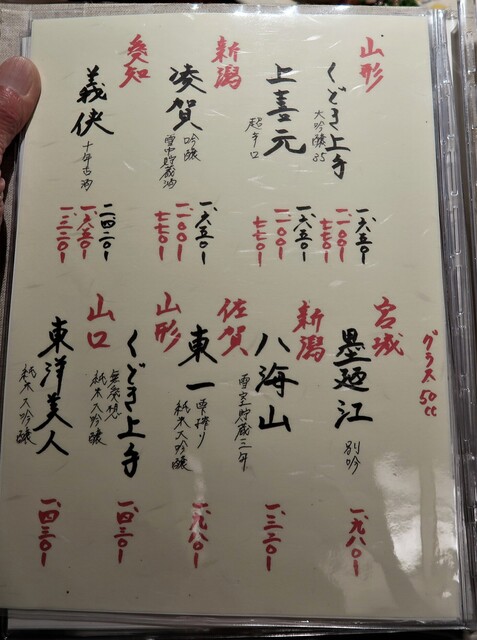 山形
くどき上手
大吟醸35
一、六五〇-
一、一〇〇-
七七〇-
上喜元
超辛口
一、六五〇-
一、一〇〇-
七七〇-
新潟
凌賀
吟醸
雪中貯蔵酒
一、六五〇-
一、一〇〇-
七七〇-
愛知
義侠
十年古酒
二、四二〇-
一、六五〇-
一、三二〇-
グラス50cc
宮城
墨廼江
別吟
一、九八〇-
新潟
八海山
雪室貯蔵三年
一、三二〇-
佐賀
東一
雫搾り
純米大吟醸
一、九八〇-
山形
くどき上手
純米大吟醸
一、四三〇-
山口
東洋美人
純米大吟醸
一、四三〇-